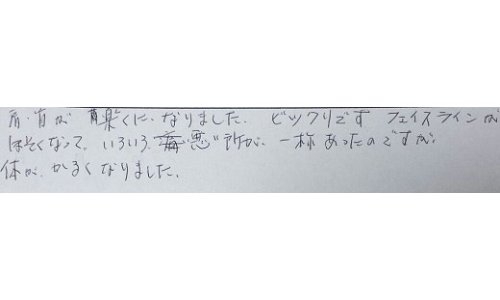 肩・首が 楽くに なりました. ビックリです フェイスラインが
ほそくなって, いろいろ 悪い所が, 一杯 あったのですが
体が, かるく なりました.